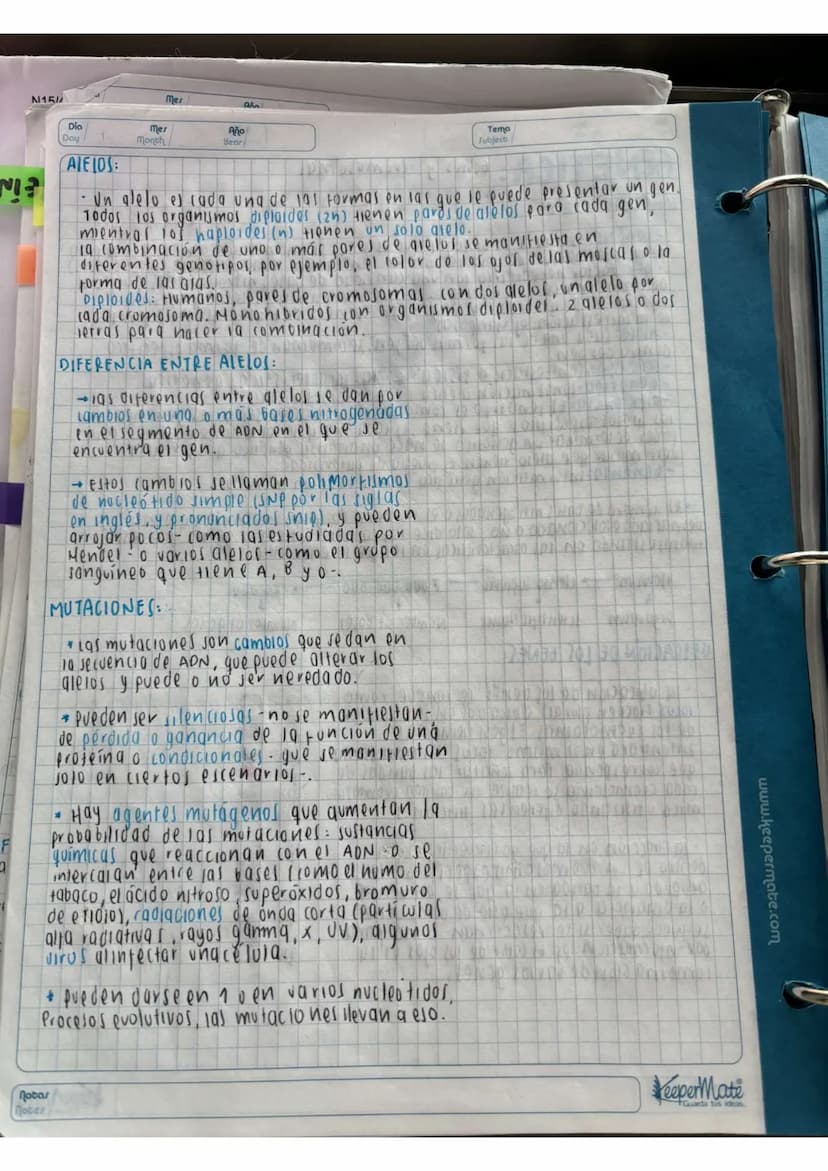 N15/
Mes
Año
Día
Day
Mes
Month
Año
Year
Tema
Subject
Alelos:
· Un alelo es cada una de las formas en las que se puede presentar un gen.
Todos los organismos diploides (2n) tienen pares de alelos para cada gen,
mientras los haploides (n) tienen un solo alelo.
La combinación de uno o más pares de alelos se manifiesta en
diferentes genotipos, por ejemplo, el color de los ojos de las moscas o la
forma de las alas.
Diploides: Humanos, pares de cromosomas con dos alelos, un alelo por
cada cromosoma. Monohíbridos con organismos diploides.. 2 alelos o dos
letras para hacer la combinación.
DIFERENCIA ENTRE ALELOS:
→ Las diferencias entre alelos se dan por
cambios en una o más bases nitrogenadas
en el segmento de ADN en el que se
encuentra el gen.
→ Estos cambios se llaman polimorfismos
de nucleótido simple (SNP por las siglas
en inglés, y pronunciados snip), y pueden
arrojar pocos - como las estudiadas por
Mendel - o varios alelos - como el grupo
sanguíneo que tiene A, B y O-.
MUTACIONES:
* Las mutaciones son cambios que se dan en
la secuencia de ADN, que puede alterar los
alelos y puede o no ser heredado.
* Pueden ser silenciosas - no se manifiestan-
de pérdida o ganancia de la función de una
proteína o condicionales - que se manifiestan
solo en ciertos escenarios -.
* Hay agentes mutágenos que aumentan la
probabilidad de las mutaciones: sustancias
químicas que reaccionan con el ADN o se
intercalan entre las bases (como el humo del
tabaco, el ácido nitroso, superóxidos, bromuro
de etidio), radiaciones de onda corta (partículas
alfa radiativas, rayos gamma, x, UV), algunos
virus al infectar una célula.
* Pueden darse en 1 o en varios nucleótidos.
Procesos evolutivos, las mutaciones llevan a eso.
www.keepermate.com
Notas
Notes
KeeperMate
Guarda tus ideas